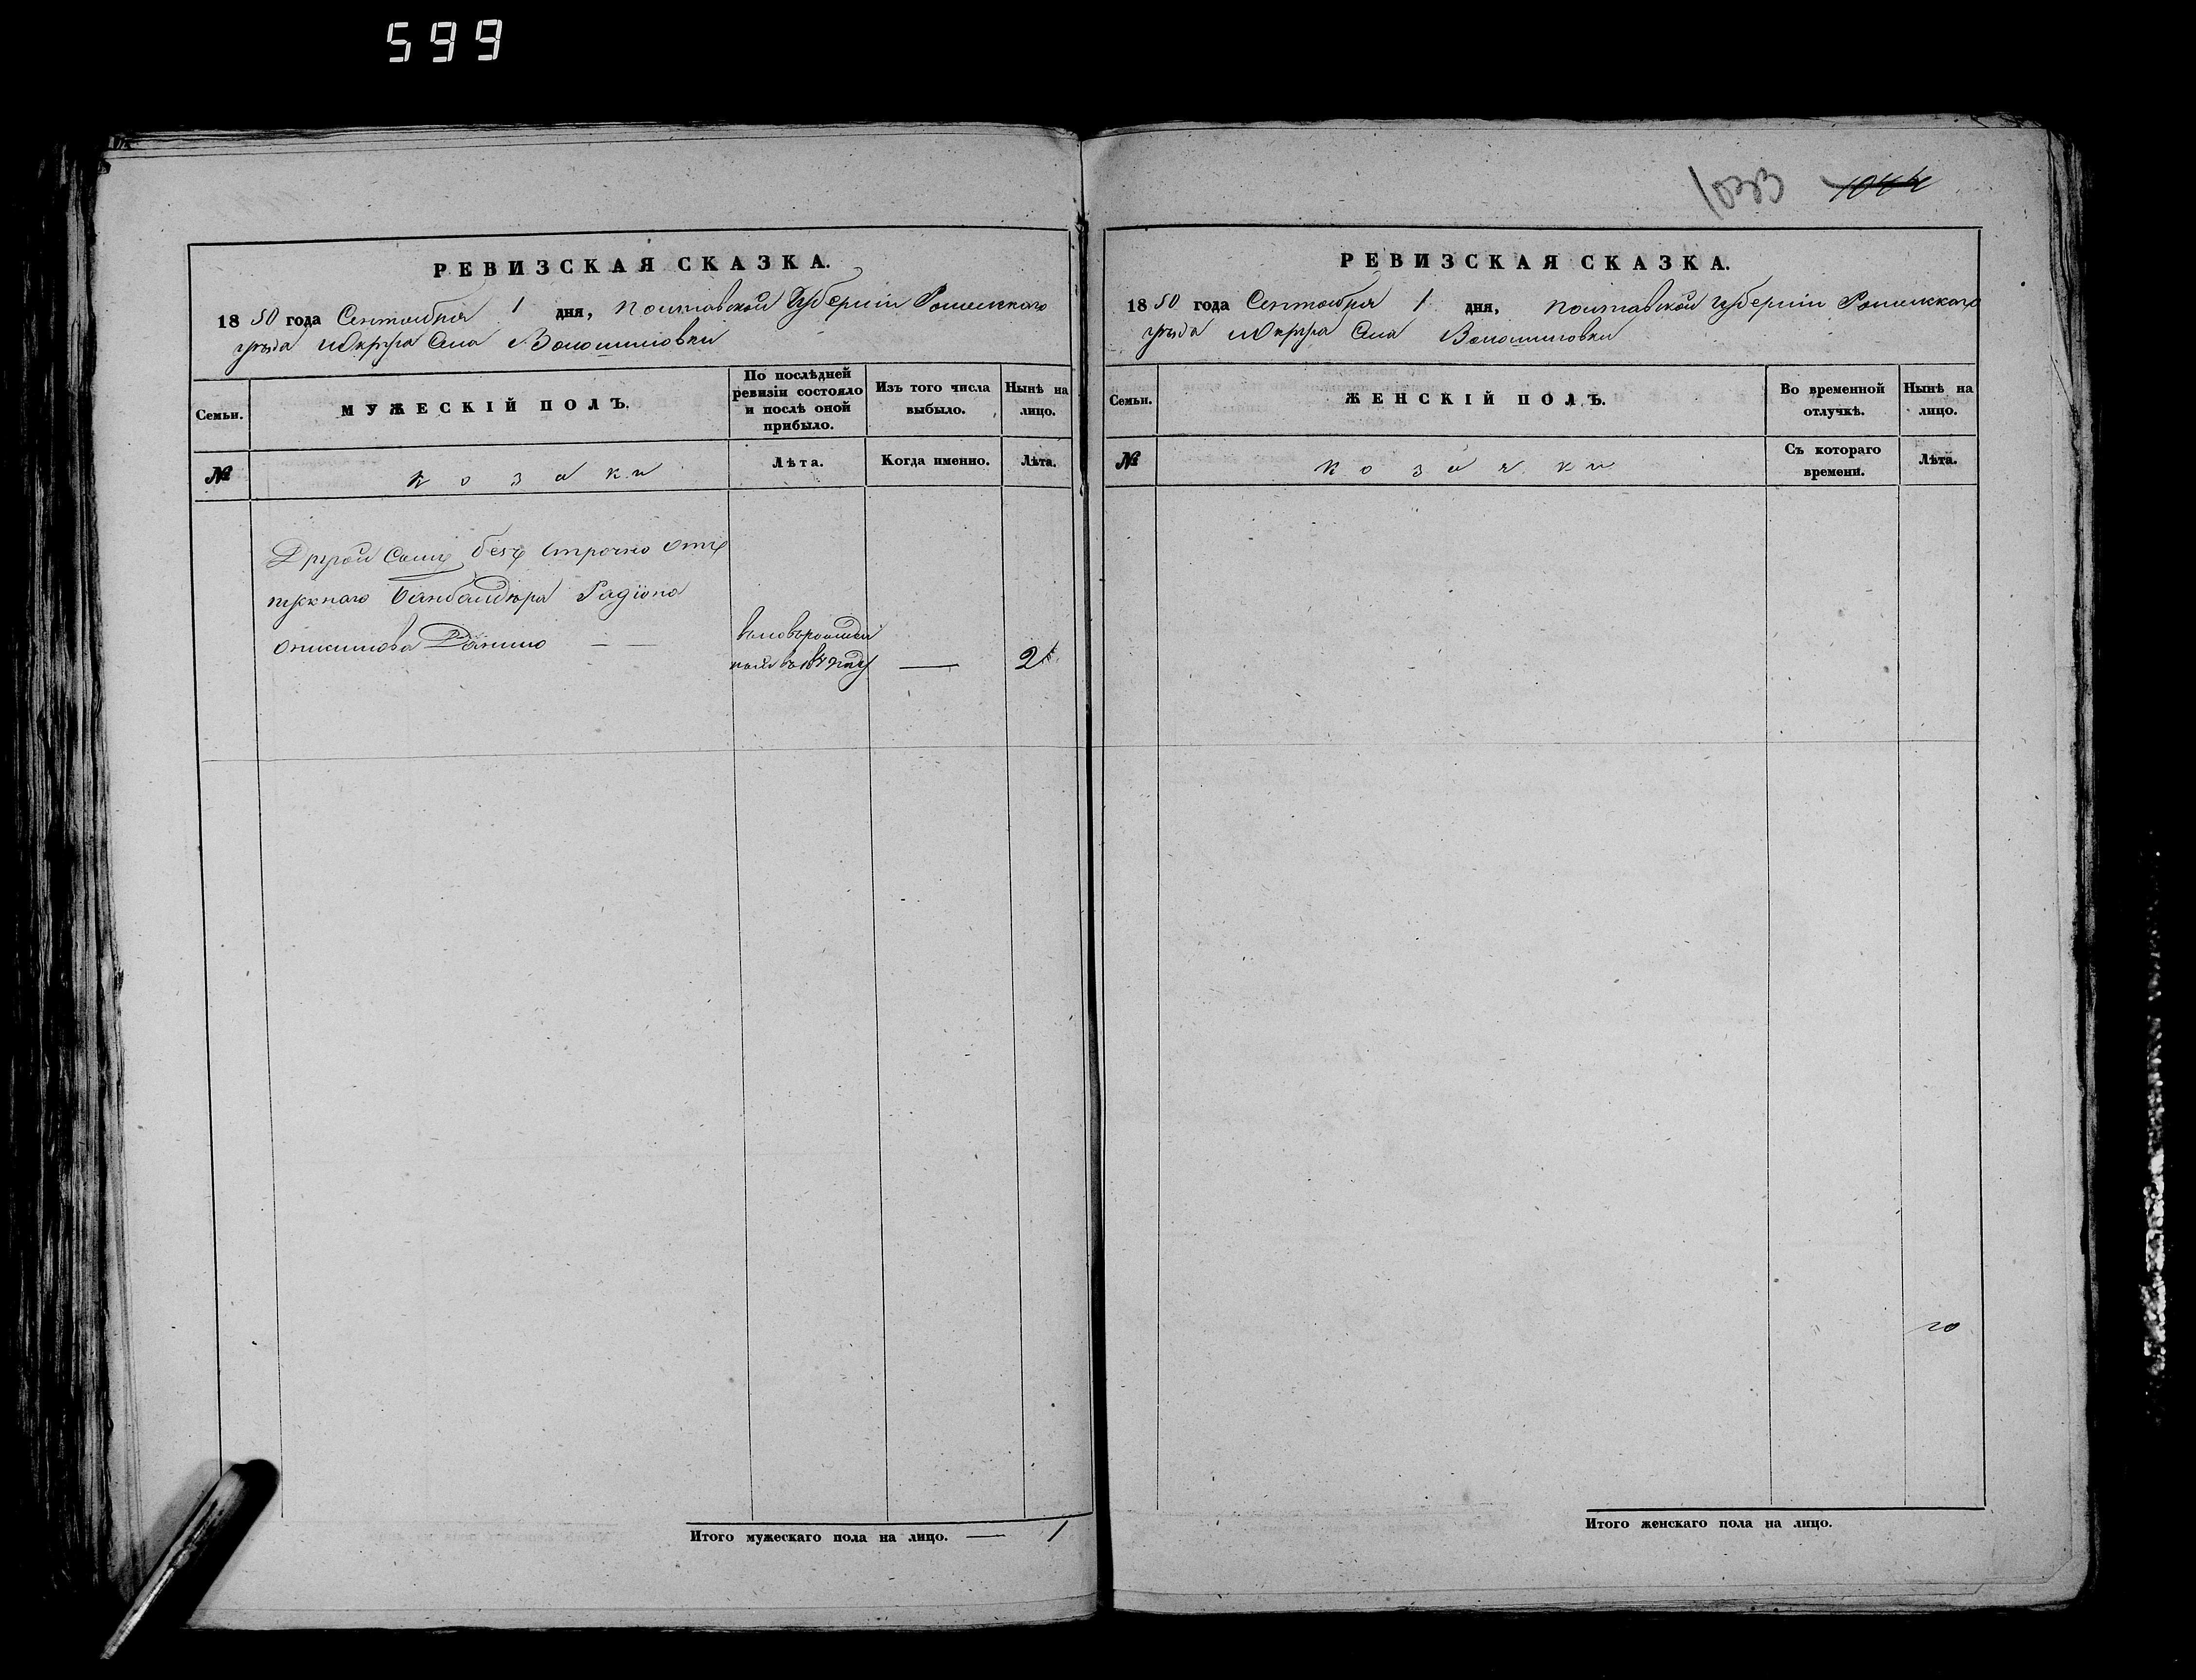 599
1033 1044
РЕВИЗСКАЯ СКАЗКА.
1850 года Сентября 1 дня, Полтавской Губерніи Роменскаго
уѣзда и Округа Села Волошиновки
Семьи.
МУЖЕСКІЙ ПОЛЪ.
По послѣдней ревизіи состояло и послѣ оной прибыло.
Изъ того числа выбыло.
Нынѣ на лицо.
№
козаки
Лѣта.
Когда именно.
Лѣта.
Другой сынъ безъ срочно отъ
пускнаго Бамбандюра Радіона
Онисимова Данило — —
въ 184 году — 2
Итого мужескаго пола на лицо. — 1
РЕВИЗСКАЯ СКАЗКА.
1850 года Сентября 1 дня, Полтавской Губерніи Роменскаго
уѣзда и Округа Села Волошиновки
Семьи.
ЖЕНСКІЙ ПОЛЪ.
Во временной отлучкѣ.
Нынѣ на лицо.
№
козачки
Съ котораго времени.
Лѣта.
Итого женскаго пола на лицо.